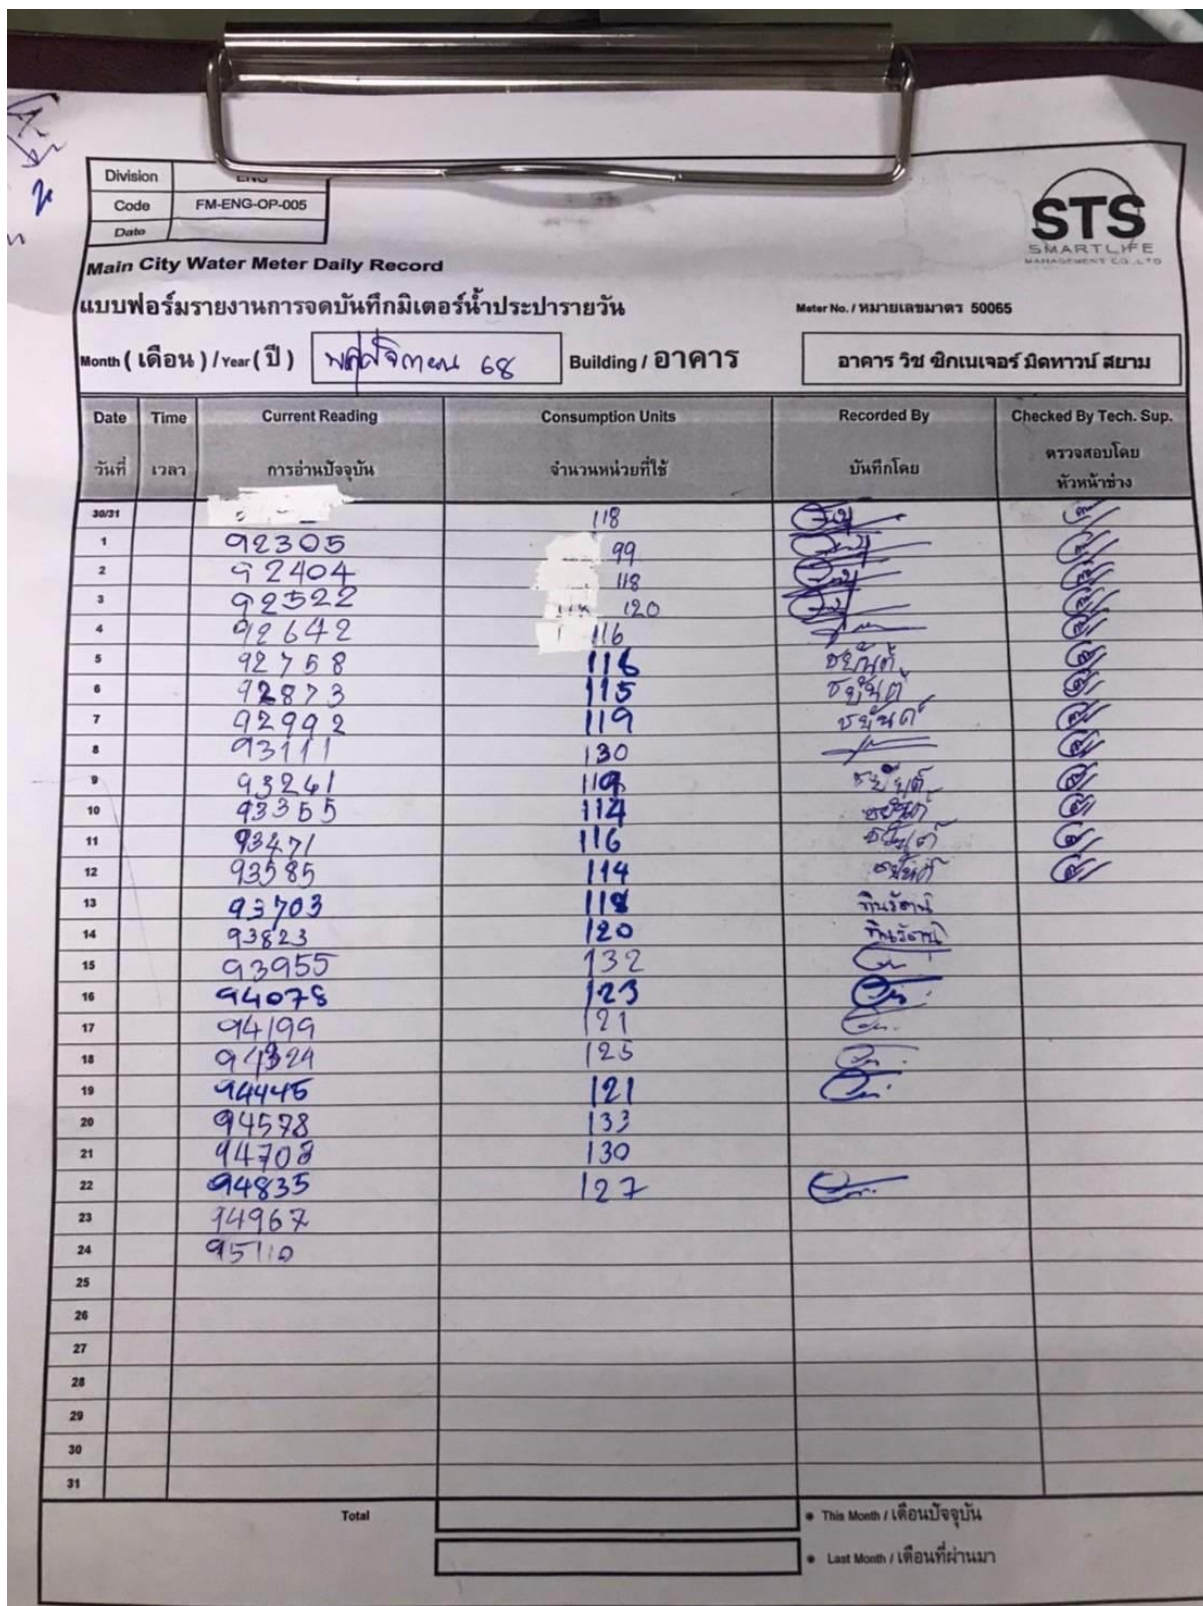 Division ENG
Code FM-ENG-OP-005
Date
STS
SMARTLIFE
MANAGEMENT CO.,LTD
Main City Water Meter Daily Record
แบบฟอร์มรายงานการจดบันทึกมิเตอร์น้ำประปารายวัน
Meter No. / หมายเลขมาตร 50065
Month ( เดือน ) / Year ( ปี ) พฤศจิกายน 68 Building / อาคาร อาคาร วิช ซิกเนเจอร์ มิดทาวน์ สยาม
Date Time Current Reading Consumption Units Recorded By Checked By Tech. Sup.
วันที่ เวลา การอ่านปัจจุบัน จำนวนหน่วยที่ใช้ บันทึกโดย ตรวจสอบโดย
หัวหน้าช่าง
30/31 118
1 92305 99
2 92404 118
3 92522 120
4 92642 116
5 92758 116 ชยันต์
6 92873 115 ชยันต์
7 92992 119 ชยันต์
8 93111 130
9 93241 ชยันต์
10 93355 114 ชยันต์
11 93471 116 ชยันต์
12 93585 114 ชยันต์
13 93703 118 ทินรัตน์
14 93823 120 ทินรัตน์
15 93955 132
16 94078 123
17 94199 121
18 94324 125
19 94445 121
20 94578 133
21 94708 130
22 94835 127
23 94967
24 95110
25
26
27
28
29
30
31
Total
This Month / เดือนปัจจุบัน
Last Month / เดือนที่ผ่านมา